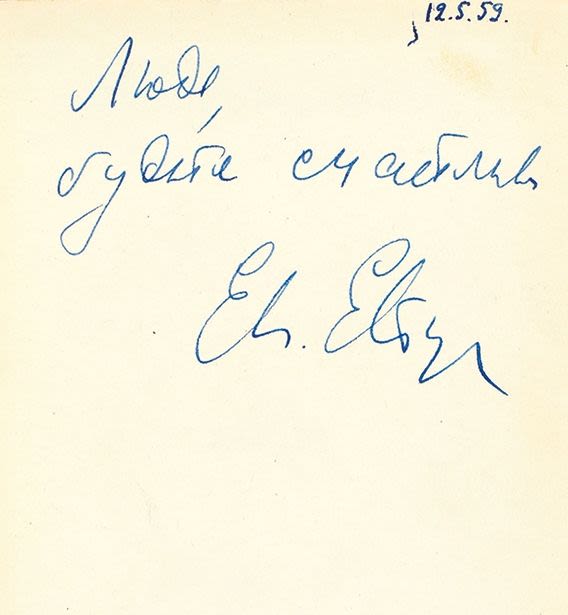 12.5.59.
Люде,
будьте счастливы
Ев.